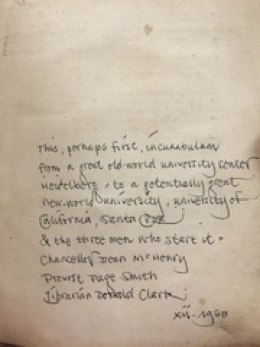 This, perhaps first, incunabulum
from a great old-world university center
Heidelberg, to a potentially great
new-world university, university of
California, Santa Cruz
& the three men who start it -
Chancellor Dean McHenry
Provost Page Smith
Librarian Donald Clark
xii. 1960